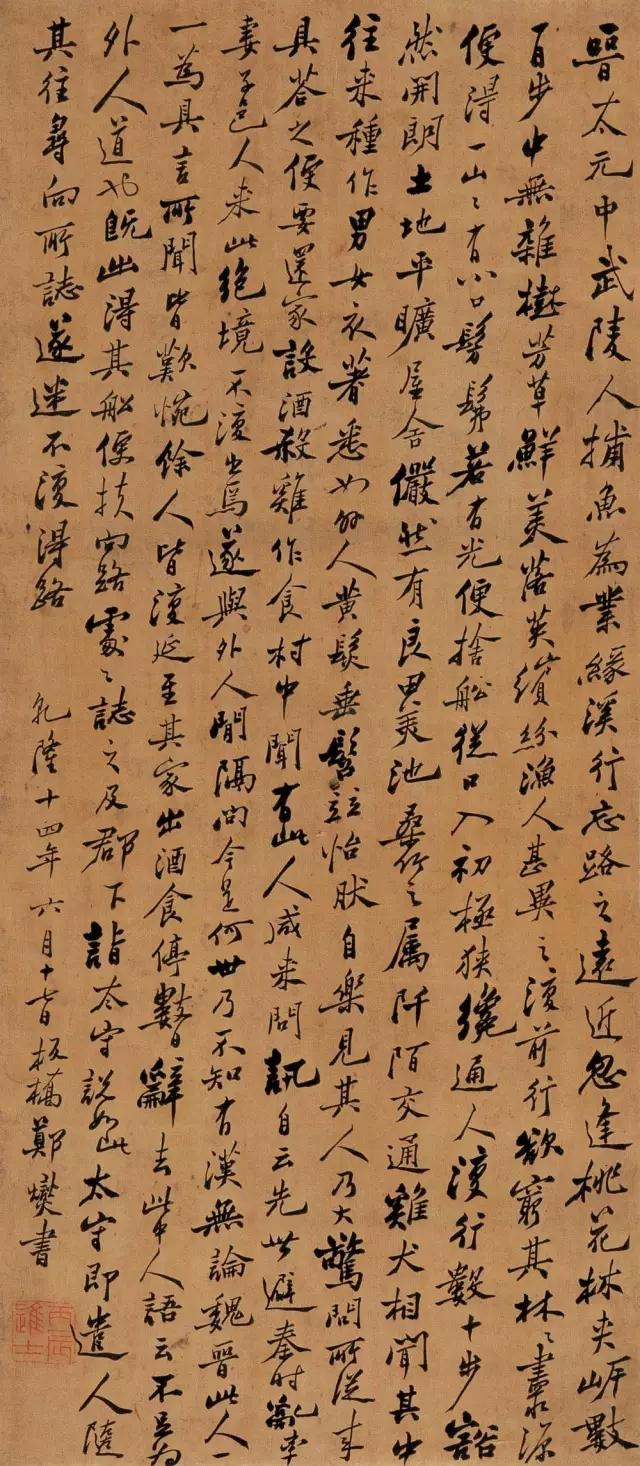 晉太元中武陵人捕魚為業緣溪行忘路之遠近忽逢桃花林夾岸數
百步中無雜樹芳草鮮美落英繽紛漁人甚異之復前行欲窮其林〻盡水源
便得一山〻有小口髣髴若有光便捨船從口入初極狹纔通人復行數十步豁
然開朗土地平曠屋舍儼然有良田美池桑竹之屬阡陌交通雞犬相聞其中
往來種作男女衣著悉如外人黃髮垂髫竝怡然自樂見其人乃大驚問所從來
具荅之便要還家設酒殺雞作食村中聞有此人咸來問訊自云先世避秦時亂率
妻子邑人來此絕境不復出焉遂與外人間隔問今是何世乃不知有漢無論魏晉此人一
一為具言所聞皆歎惋餘人皆復延至其家出酒食停數日辭去此中人語云不足為
外人道也既出得其船便扶向路處〻誌之及郡下詣太守說如此太守即遣人隨
其往尋向所誌遂迷不復得路 乾隆十四年六月十日板橋鄭燮書
丙辰進士